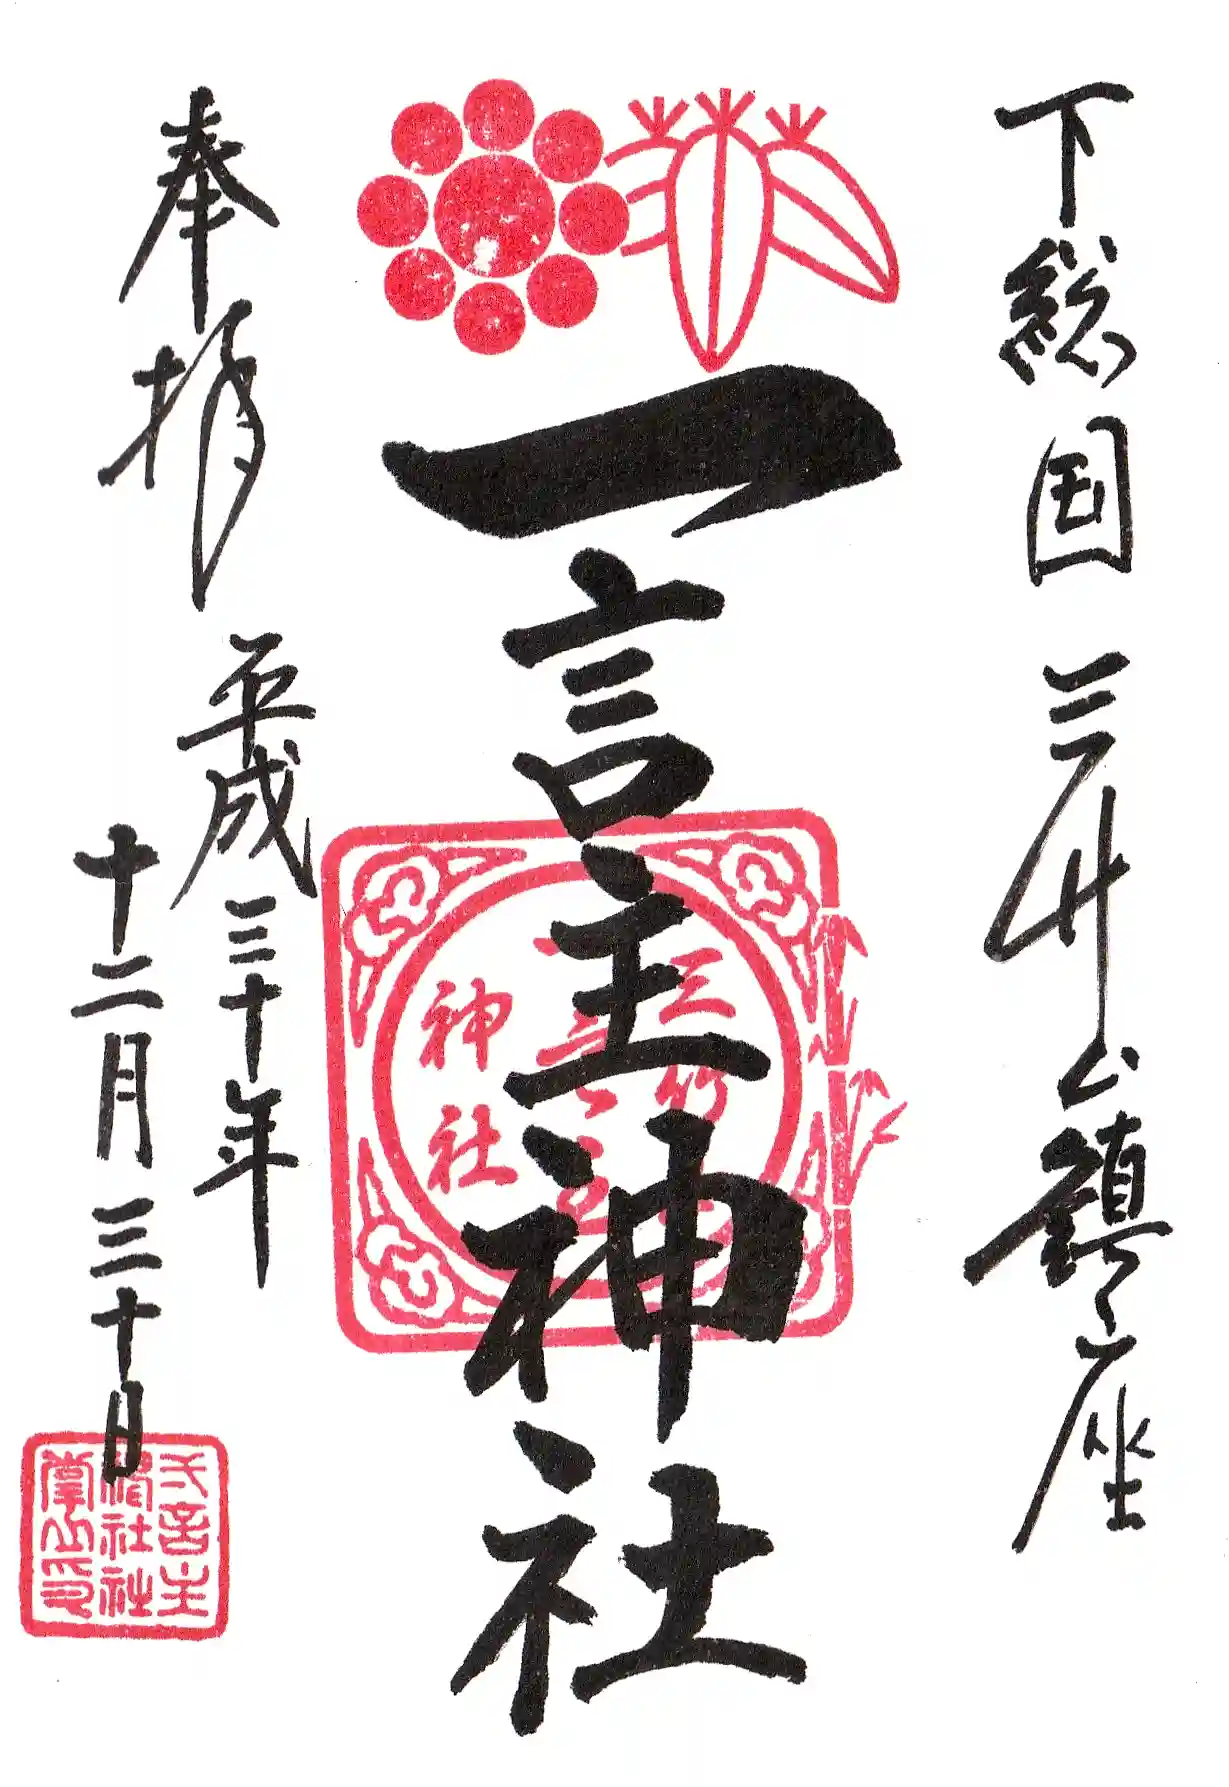 下総国 三竹山鎮座
一言主神社
奉拝
平成三十年
十二月三十日
三竹
神社
一言主
神社社
掌之印